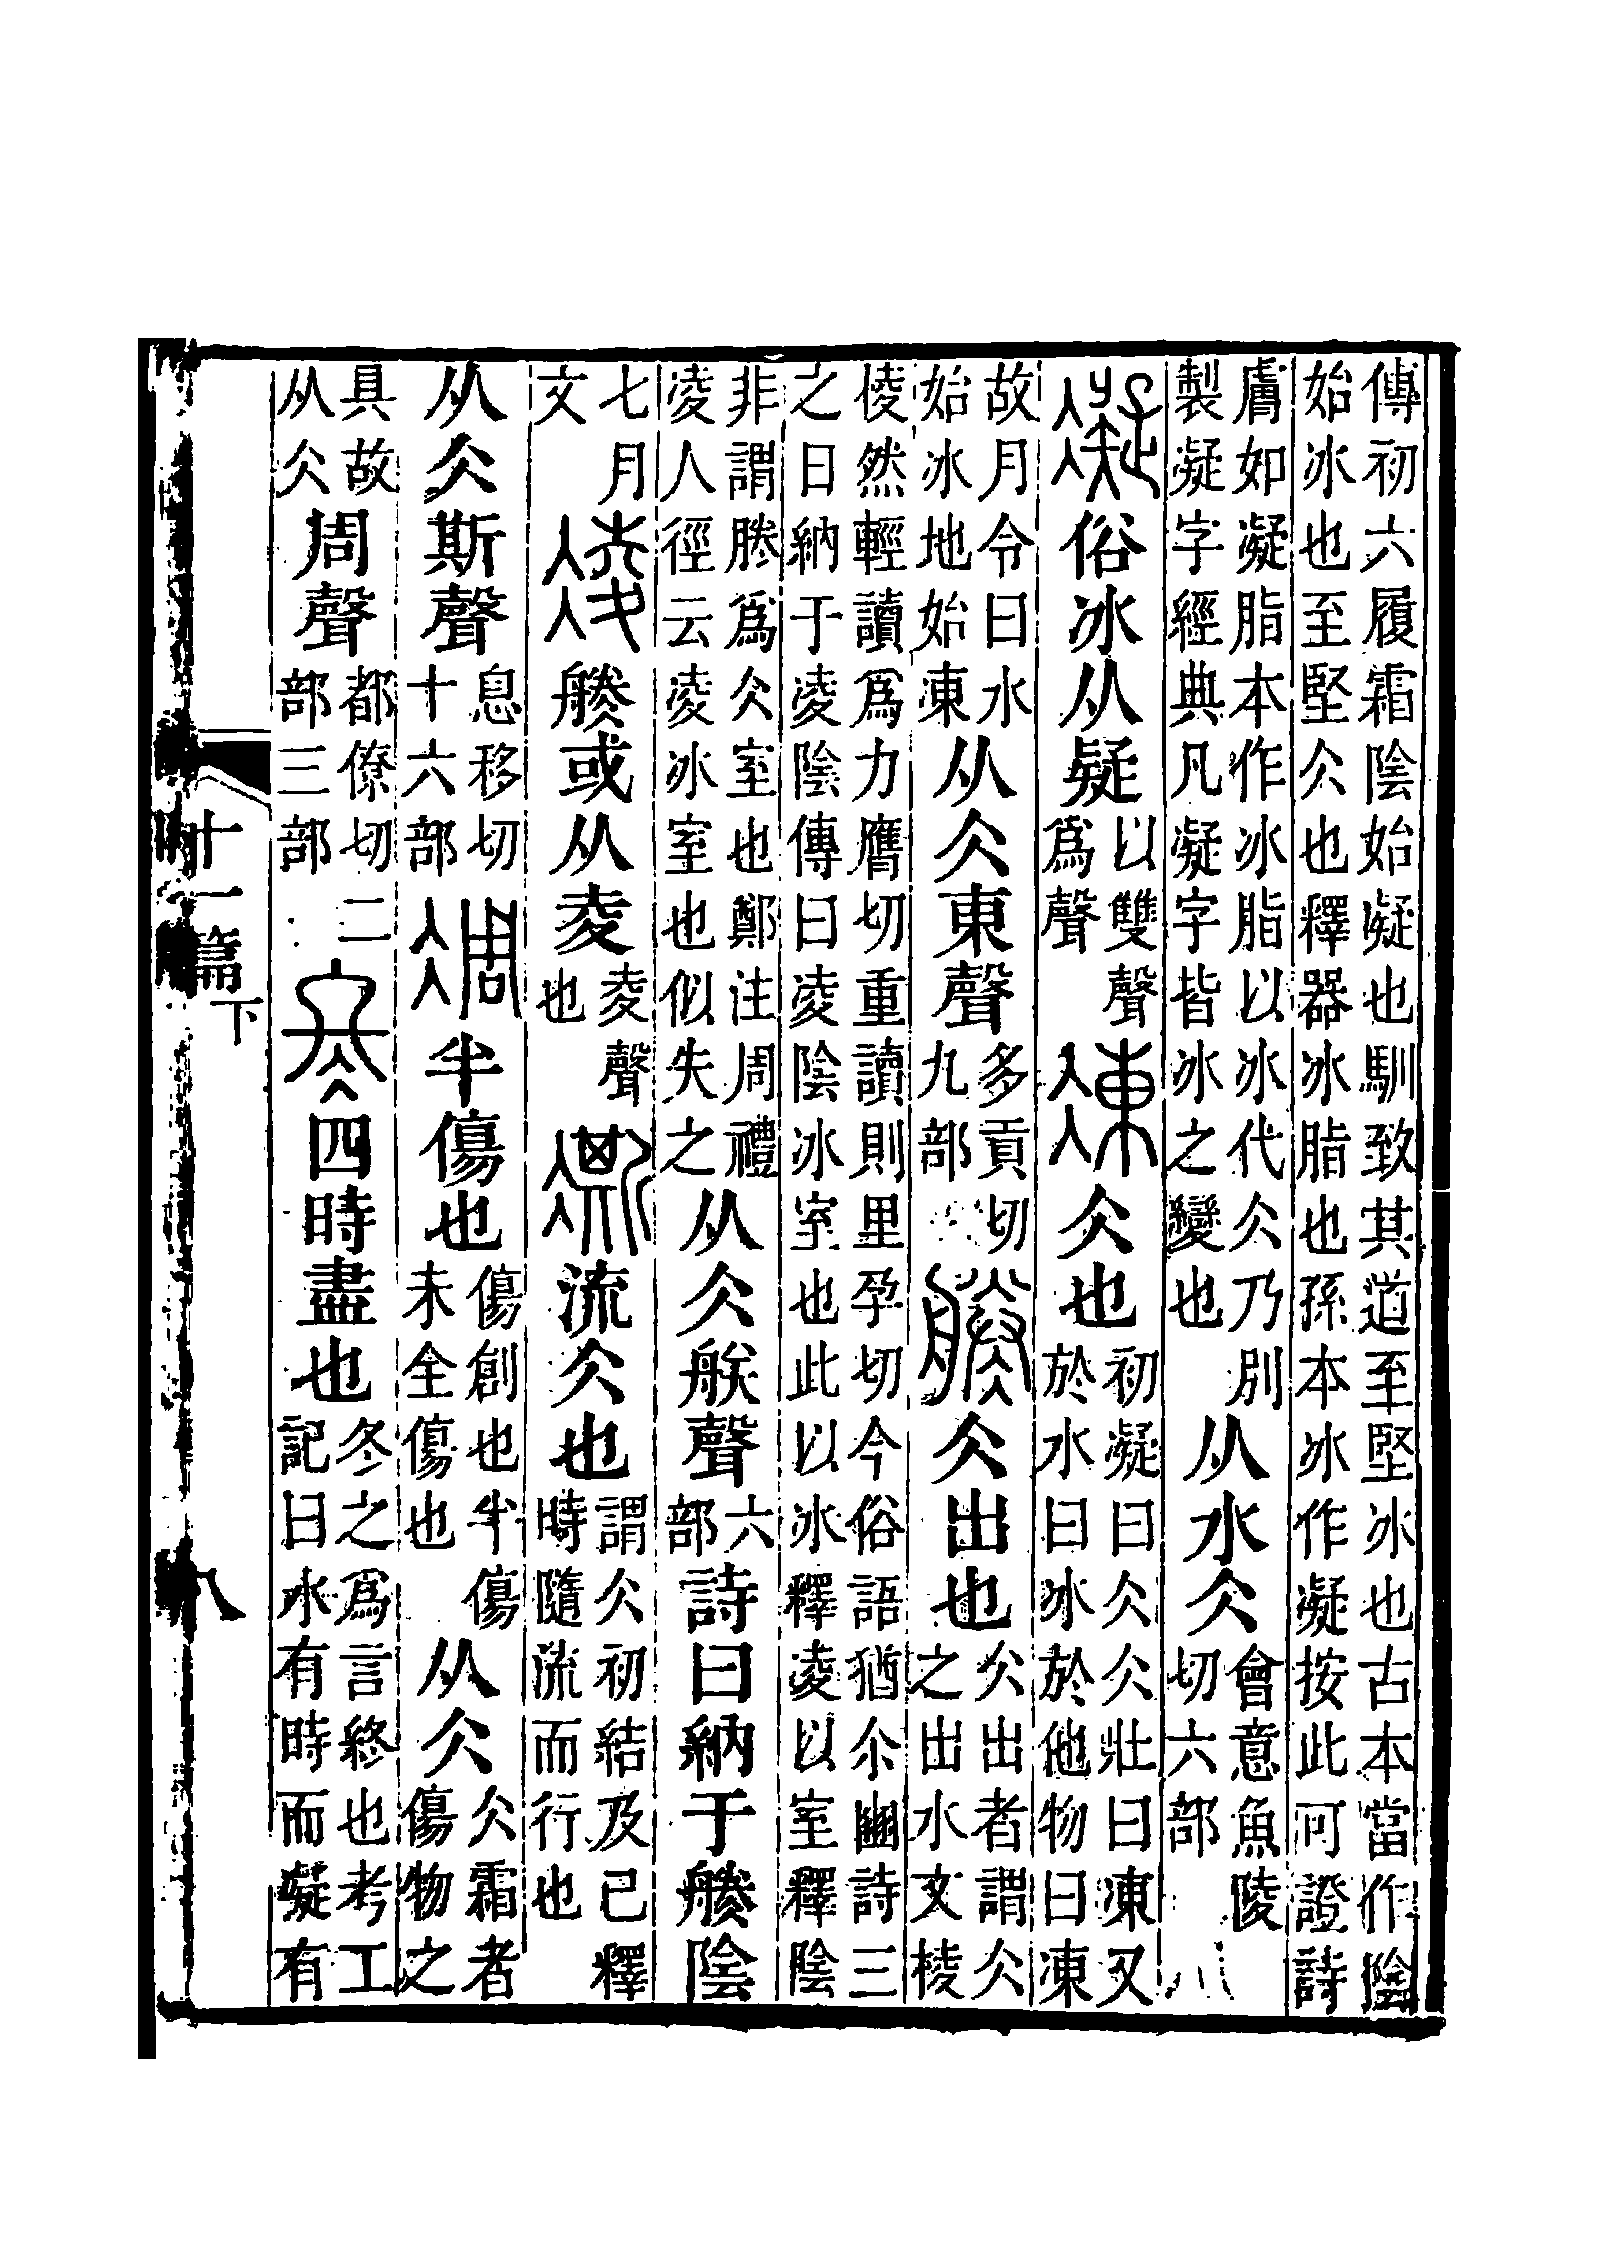 傳初六履霜陰始凝也馴致其道至堅冰也古本當作陰始冰也至堅仌也釋器冰脂也孫本冰作凝按此可證詩
膚如凝脂本作冰脂以冰代仌乃別製凝字經典凡凝字皆冰之變也从水仌會意魚陵切六部
凝俗冰从疑以雙聲爲聲凍仌也初凝曰仌仌壯曰凍又於水曰冰於他物曰凍
故月令曰水始冰地始凍从仌東聲多貢切九部𦩎仌出也仌出者謂仌之出水文棱
棱然輕讀爲力膺切重讀則里孕切今俗語猶尒豳詩三之日納于凌陰傳曰凌陰冰室也此以冰釋凌以室釋陰
非謂𦩎爲仌室也鄭注周禮凌人徑云凌冰室也似失之从仌朕聲六部詩曰納于𦩎陰
七月文凌𦩎或从夌夌聲也澌流仌也謂仌初結及已釋時隨流而行也
从仌斯聲息移切十六部凋半傷也傷創也半傷未全傷也从仌仌霜者傷物之
具故从仌周聲都僚切二部三部冬四時盡也冬之爲言終也考工記曰水有時而凝有
十一篇下 八